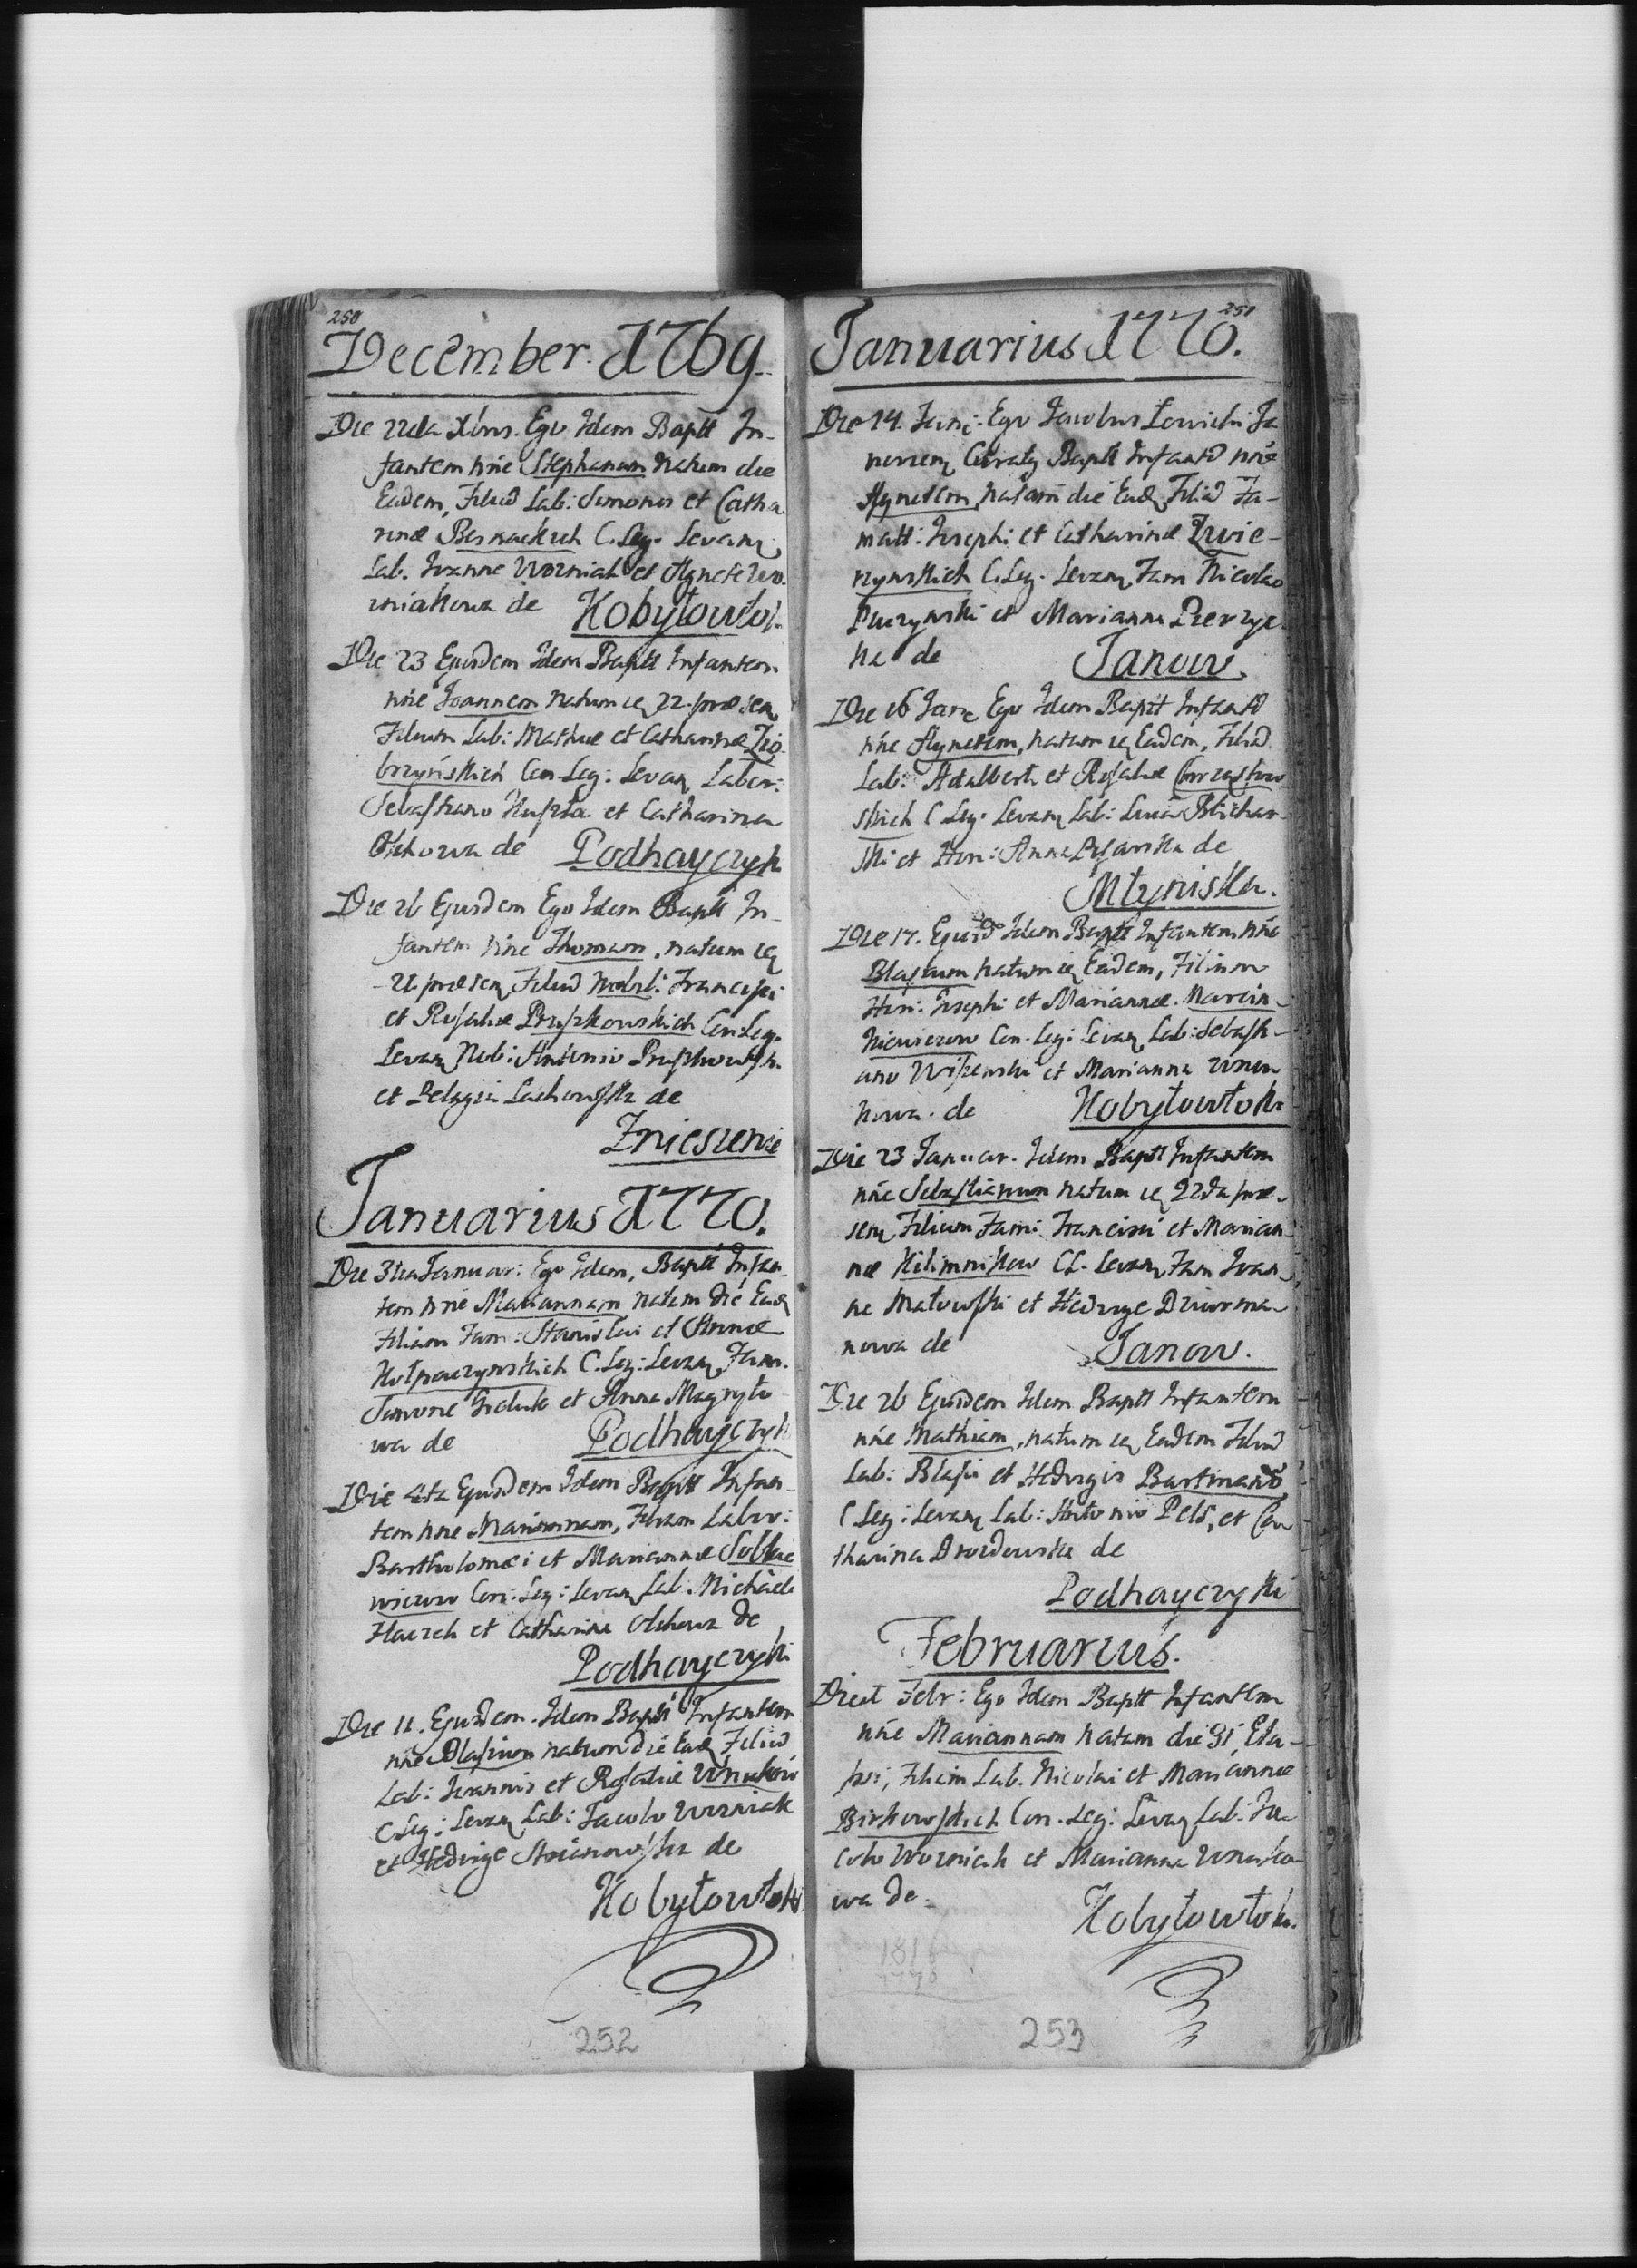 250
December 1769.
Die 22da Xbris. Ego Idem Baptt In-
fantem nñe Stephanum natum die
Eadem, Filiũ Lab: Simonis et Catha
rinæ Bernackich C. Leg. Levanƺ
Lab. Ivanne Wozniak et Agnete Wo.
zniakowa de Kobyłowłok.
Die 23 Ejusdem Idem Baptt Infantem
nñe Joannem natum ie 22 præsen
Filium Lab: Mathiæ et Catharinæ Zio
brzyńskich Con Leg: Levan Labor:
Sebastiano Kuszta et Catharina
Olchowa de Podhayczyk
Die 26 Ejusdem Ego Idem Baptt In-
fantem nñe Thomam, natum ie
21 præsen Filiũ Nobil: Francisci
et Rosaliæ Pruszkowskich Con: Leg.
Levan Nob: Antonio Pruszkowsk.
et Pelagia Lachowska de
Zniesienie
Januarius 1770.
Die 3tia Januar: Ego Idem, Baptt Infan
tem nñe Mariannam natam die Ead
Filiam Fam: Stanislai et Annæ
Kołpaczynskich C. Leg: Levan Fam.
Simone et Anna
wa de Podhayczyk
Die 4ta Ejusdem Idem Baptt Infan-
tem nñe Mariannam, Filiam Labor:
Bartholomæi et Mariannæ Sobka
wiczow Con: Leg: Levan Lab. Michaele
Haczek et Catharina Olchowa de
Podhayczyki
Die 11. Ejusdem. Idem Baptt Infantem
nñe Blasium natum die Ead Filiũ
Lab: Ivannis et Rosaliæ Wnukow
C Leg: Levan Lab: Jacobo Wozniak
et Hedvige de
Kobyłowłok
252
251
Januarius 1770.
Die 14. Janr: Ego Jacobus Lewicki Ja
novien Curatƺ Baptt Infantẽ nñe
Agnetem, natam die Ead Filiã Fa-
matt: Josephi et Catharinæ Zwie-
rzynskich C. Leg. Levan Fam Nicolao
Puczynski et Marianna Pierzyc
ka de Janow.
Die 16 Janr Ego Idem Baptt Infantẽ
nñe Agnetem, natam ie Eadem, Filiã
Lab: Adalberti et Rosaliæ Chrząstow
skich C Leg. Levan Lab: Luca Blichar
ski et Hon: Anna Pisarska de
Młyniska.
Die 17. Ejusd Idem Baptt Infantem nñe
Blasium natum ie Eadem, Filium
Hon: Josephi et Mariannæ Marcin-
kiewiczow Con. Leg: Levan Lab: Sebasti-
ano et Marianna Wnu
kowa. de Kobyłowłoki
Die 23 Januar. Idem Baptt Infantem
nñe Sebastianum natum ie 22da præ-
sen Filium Fam: Francisci et Marian
næ Kilimnikow CL. Levan Fam Ivan
ne Małowski et Hedvige Dziurma
nowa de Janow.
Die 26 Ejusdem Idem Baptt Infantem
nñe Mathiam, natum ie Eadem Filiũ
Lab: Blasii et Hedvigis Bartmanõ
C Leg: Levan Lab: Antonio Pelc, et Ca
tharina Drozdowska de
Podhayczyki
Februarius.
Die 1 Febr: Ego Idem Baptt Infantem
nñe Mariannam natam die 31 Ela-
psi, Filiam Lab. Nicolai et Mariannæ
Birkowskich Con. Leg: Levan Lab: Ja
cobo Wozniak et Marianna Wnuko
wa de. Kobyłowłok.
1770
253